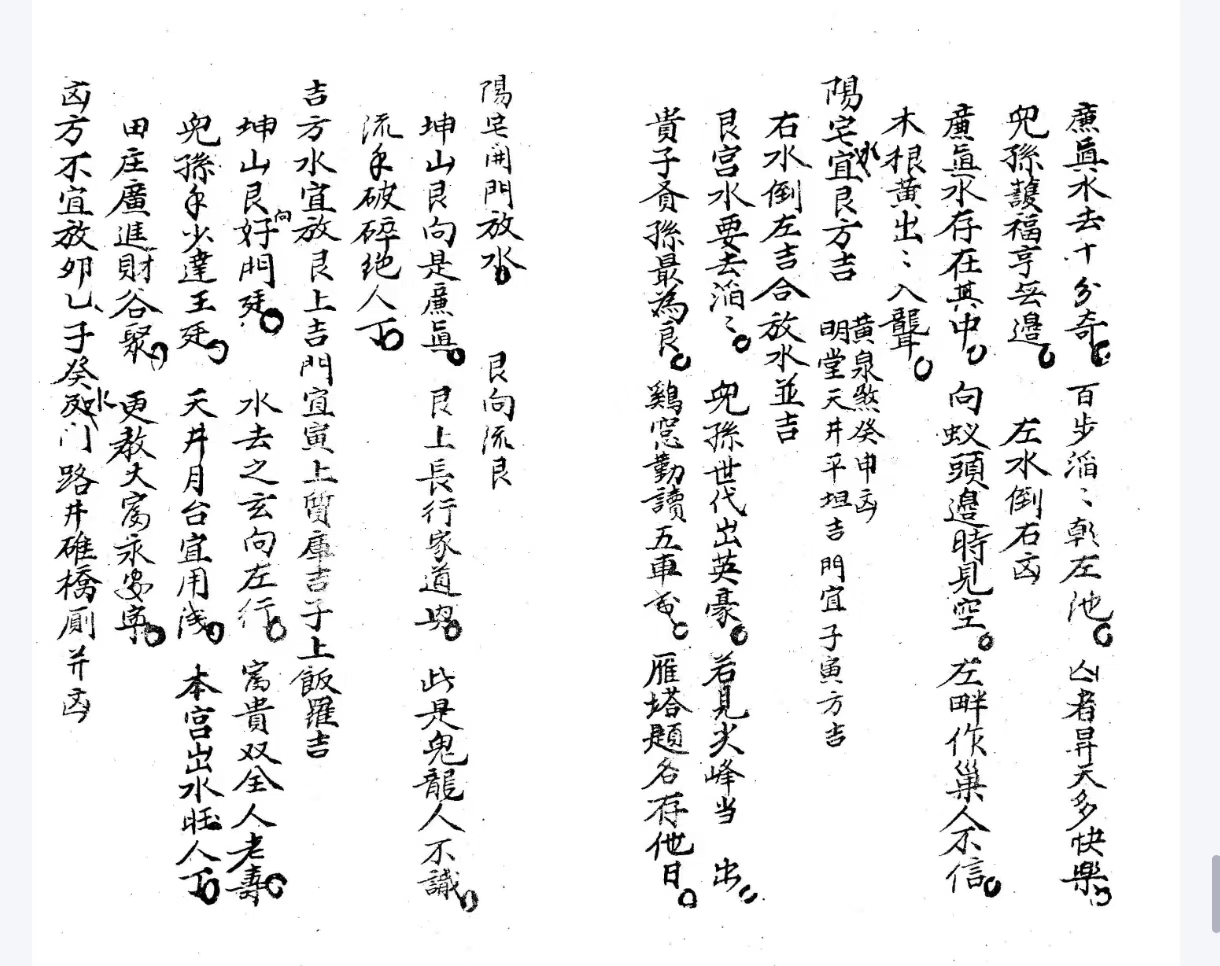 廉真水去十分奇 百步滔〻朝左池 凶者昇天多快樂
兒孫護福亨無邊 左水倒右凶
廉真水存在其中 向蚁頭邊時見空 左畔作巢人不信
木根黃出〻入聾
陽宅水宜艮方吉 黃泉煞癸申凶
明堂天井平坦吉門宜子寅方吉
右水倒左吉合放水並吉
艮宮水要去滔〻 兒孫世代出英豪 若見尖峰当出
貴子賢孫最為良 鷄窓勤讀五車 雁塔題名存他日
陽宅開門放水 艮向流艮
坤山艮向是廉真 艮上長行家道 此是鬼龍人不識
流年破碎絶人丁
吉方水宜放艮上吉門宜寅上質庫吉子上飯羅吉
坤山艮向好門廷 水去之玄向左行 富貴双全人老壽
兒孫年少達王廷 天井月台宜用浅 本宮出水旺人丁
田庄廣進財谷聚 更教大富永安寧
凶方不宜放卯乙子癸水門路井碓橋厠并凶